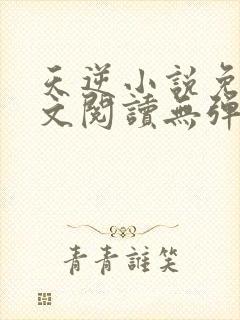 天逆小說免
文閱讀無彈
青青誰笑